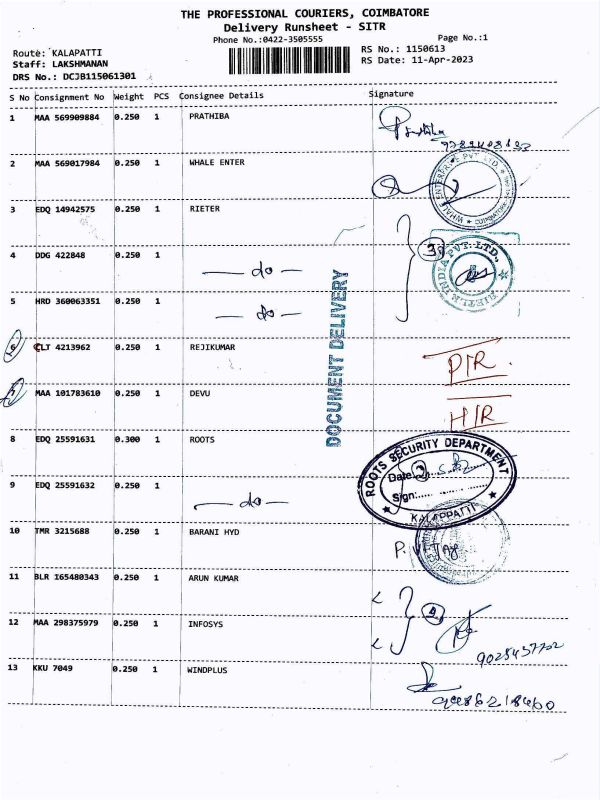 THE PROFESSIONAL COURIERS, COIMBATORE
Delivery Runsheet - SITR
Phone No.:0422-3505555
Page No.:1
Route: KALAPATTI
RS No.: 1150613
Staff: LAKSHMANAN
RS Date: 11-Apr-2023
DRS No.: DCJB115061301
S No Consignment No Weight PCS Consignee Details Signature
1 MAA 569909884 0.250 1 PRATHIBA
2 MAA 569017984 0.250 1 WHALE ENTER
WHALE ENTERPRISE PVT LTD. ★ COIMBATORE
3 EDQ 14942575 0.250 1 RIETER
3
4 DDG 422848 0.250 1 — do —
RIETER INDIA PVT. LTD.,
5 HRD 360063351 0.250 1 — do —
DOCUMENT DELIVERY
6 CLT 4213962 0.250 1 REJIKUMAR
PIR.
7 MAA 101783610 0.250 1 DEVU
HIR
8 EDQ 25591631 0.300 1 ROOTS
ROOTS SECURITY DEPARTMENT
Date: 2
Sign:......
KALAPPATTI
9 EDQ 25591632 0.250 1 — do —
10 TMR 3215688 0.250 1 BARANI HYD
P. VIJAY
11 BLR 165480343 0.250 1 ARUN KUMAR
12 MAA 298375979 0.250 1 INFOSYS
9025457702
13 KKU 7049 0.250 1 WINDPLUS
9486218460